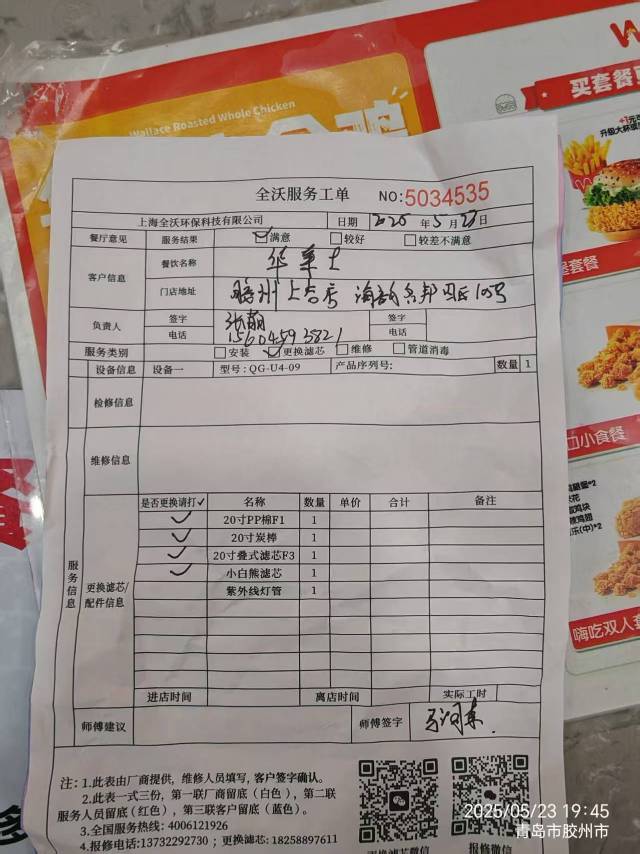 Wallace Roasted Whole Chicken
买套餐更
+1元
升级大杯
全沃服务工单 NO:5034535
上海全沃环保科技有限公司 日期 2025 年 5 月 23 日
餐厅意见 服务结果 ☑满意 □较好 □较差不满意
客户信息 餐饮名称 华莱士
门店地址 胶州
负责人 签字 签字
电话 15604593821 电话
服务类别 □安装 ☑更换滤芯 □维修 □管道消毒
设备信息 设备一 型号: QG-U4-09 产品序列号: 数量 1
检修信息
维修信息
服务信息
更换滤芯/配件信息
是否更换请打✓ 名称 数量 单价 合计 备注
✓ 20寸PP棉F1 1
✓ 20寸炭棒 1
✓ 20寸叠式滤芯F3 1
✓ 小白熊滤芯 1
紫外线灯管 1
进店时间 离店时间 实际工时
师傅建议 师傅签字
注: 1.此表由厂商提供, 维修人员填写, 客户签字确认。
2.此表一式三份, 第一联厂商留底(白色), 第二联
服务人员留底(红色), 第三联客户留底(蓝色)。
3.全国服务热线: 4006121926
4.报修电话:13732292730 ; 更换滤芯: 18258897611
更换滤芯微信 报修微信
套餐
口小食餐
嗨吃双人套
2025/05/23 19:45
青岛市胶州市